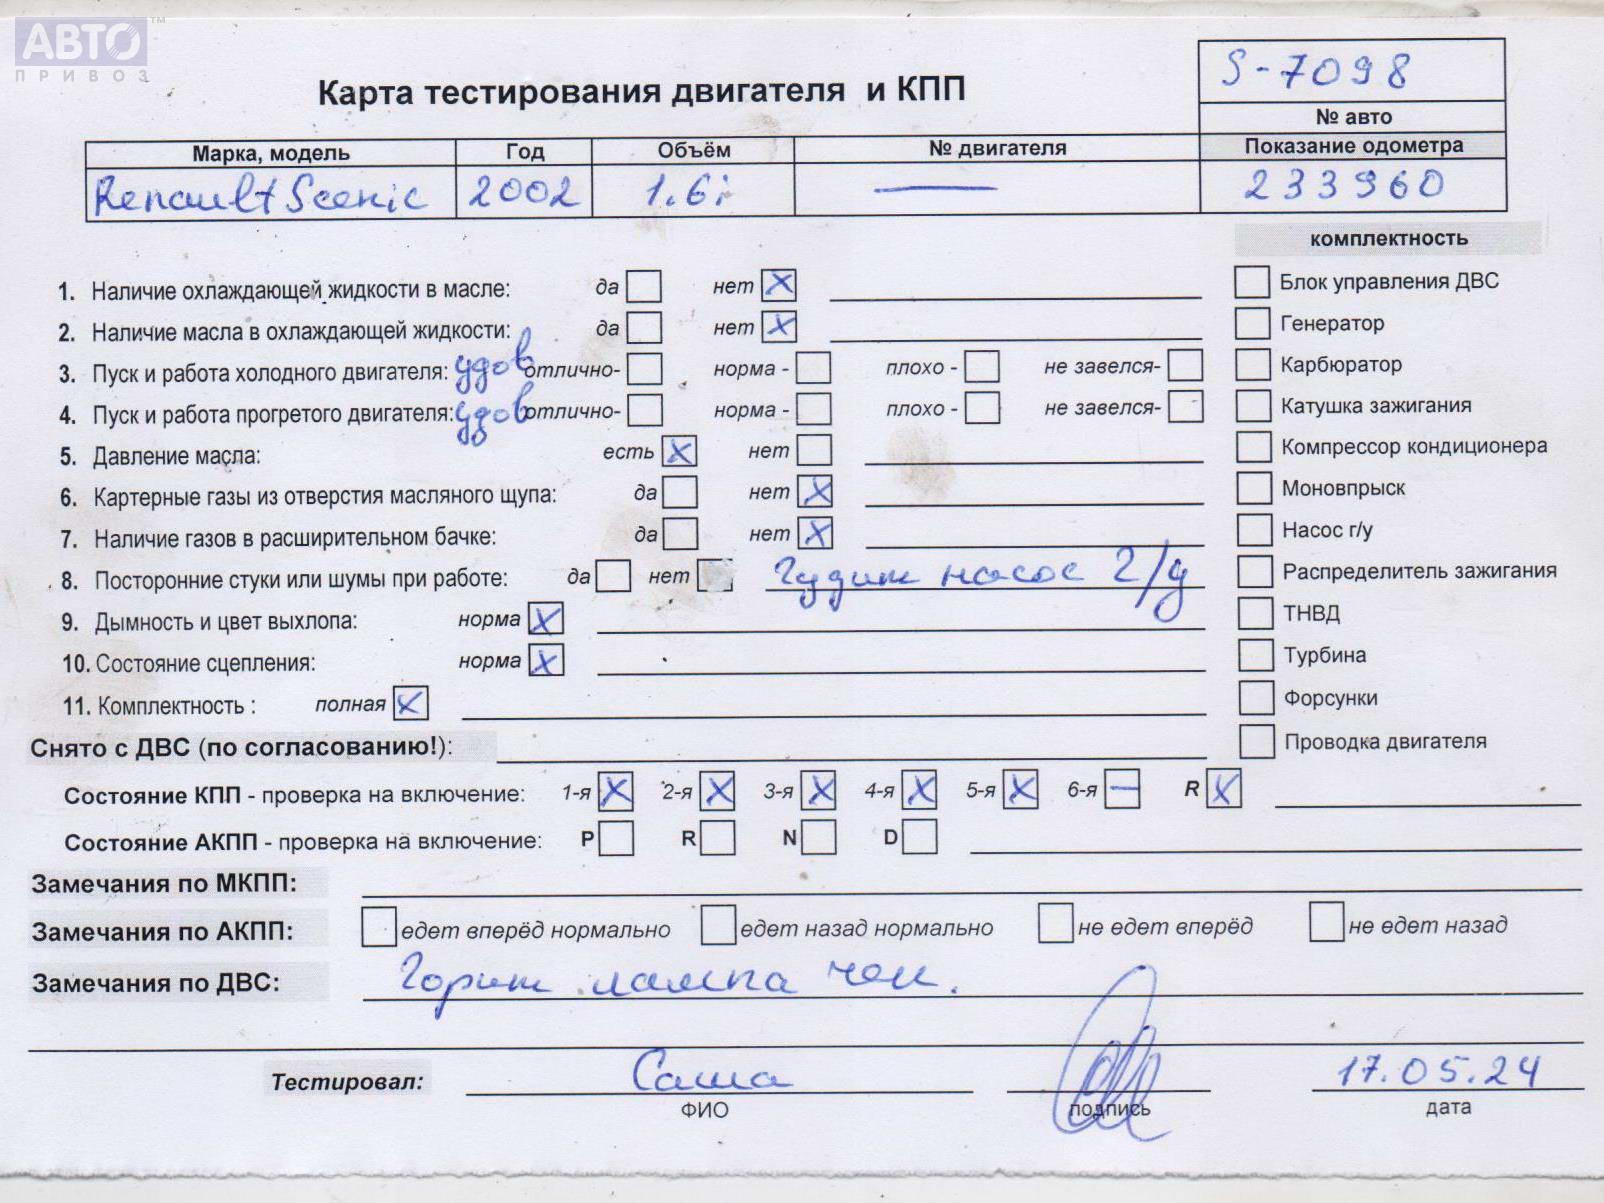 АВТО™
ПРИВОЗ
Карта тестирования двигателя и КПП
S-7098
№ авто
Марка, модель Год Объём № двигателя Показание одометра
Renault Scenic 2002 1.6i — 233960
комплектность
1. Наличие охлаждающей жидкости в масле: да нет X Блок управления ДВС
2. Наличие масла в охлаждающей жидкости: да нет X Генератор
3. Пуск и работа холодного двигателя: удов отлично- норма - плохо - не завелся- Карбюратор
4. Пуск и работа прогретого двигателя: удов отлично- норма - плохо - не завелся- Катушка зажигания
5. Давление масла: есть X нет Компрессор кондиционера
6. Картерные газы из отверстия масляного щупа: да нет X Моновпрыск
7. Наличие газов в расширительном бачке: да нет X Насос г/у
8. Посторонние стуки или шумы при работе: да нет Гудит насос г/у Распределитель зажигания
9. Дымность и цвет выхлопа: норма X ТНВД
10. Состояние сцепления: норма X Турбина
11. Комплектность : полная X Форсунки
Снято с ДВС (по согласованию!): Проводка двигателя
Состояние КПП - проверка на включение: 1-я X 2-я X 3-я X 4-я X 5-я X 6-я — R X
Состояние АКПП - проверка на включение: P R N D
Замечания по МКПП:
Замечания по АКПП: едет вперёд нормально едет назад нормально не едет вперёд не едет назад
Замечания по ДВС: Горит лампа чек.
Тестировал: Саша 17.05.24
ФИО подпись дата